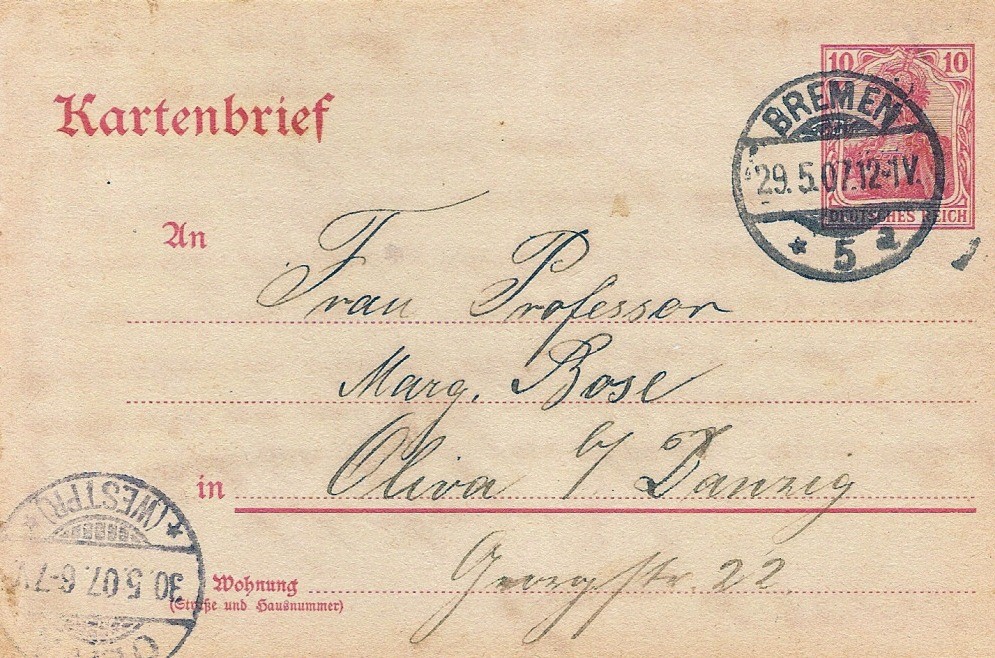 10 10
Kartenbrief
BREMEN
29.5.07.12-1V.
* 5 a
DEUTSCHES REICH
An
Frau Professor
Marg. Bose
in Oliva b/ Danzig
Wohnung
(Straße und Hausnummer)
Georgstr. 22.
(WESTPR)
30.5.07.6-7